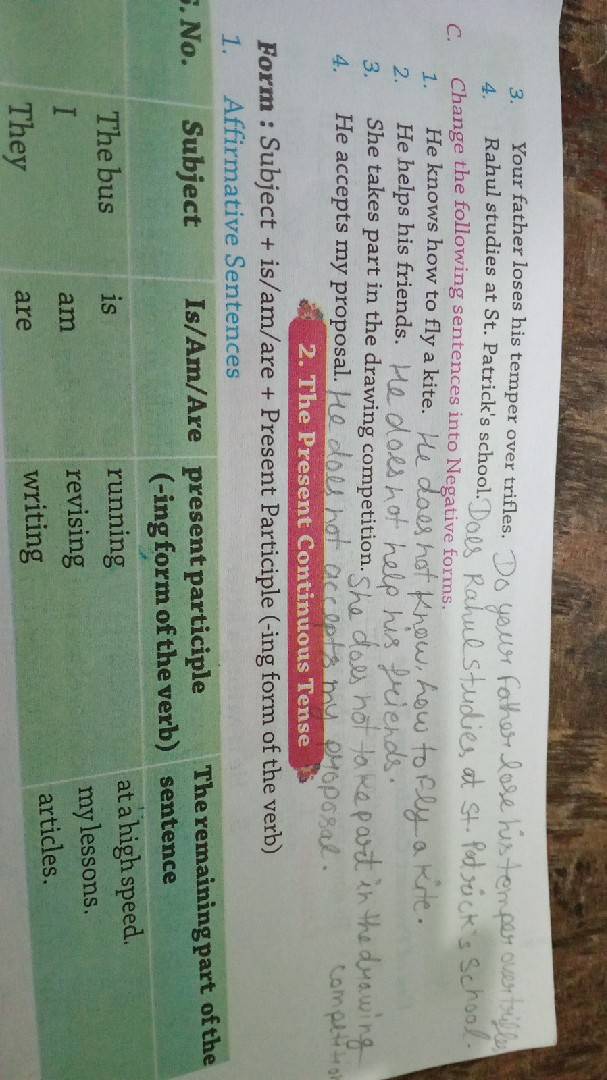 3. Your father loses his temper over trifles. Do your father lose his temper over trifles
4. Rahul studies at St. Patrick's school. Does Rahul studies at St. Patrick's School.
C. Change the following sentences into Negative forms.
1. He knows how to fly a kite. He does not know how to fly a kite.
2. He helps his friends. He does not help his friends.
3. She takes part in the drawing competition. She does not take part in the drawing competition
4. He accepts my proposal. He does not accepts my proposal.
2. The Present Continuous Tense
Form : Subject + is/am/are + Present Participle (-ing form of the verb)
1. Affirmative Sentences
S. No. Subject Is/Am/Are present participle The remaining part of the
(-ing form of the verb) sentence
The bus is running at a high speed.
I am revising my lessons.
They are writing articles.